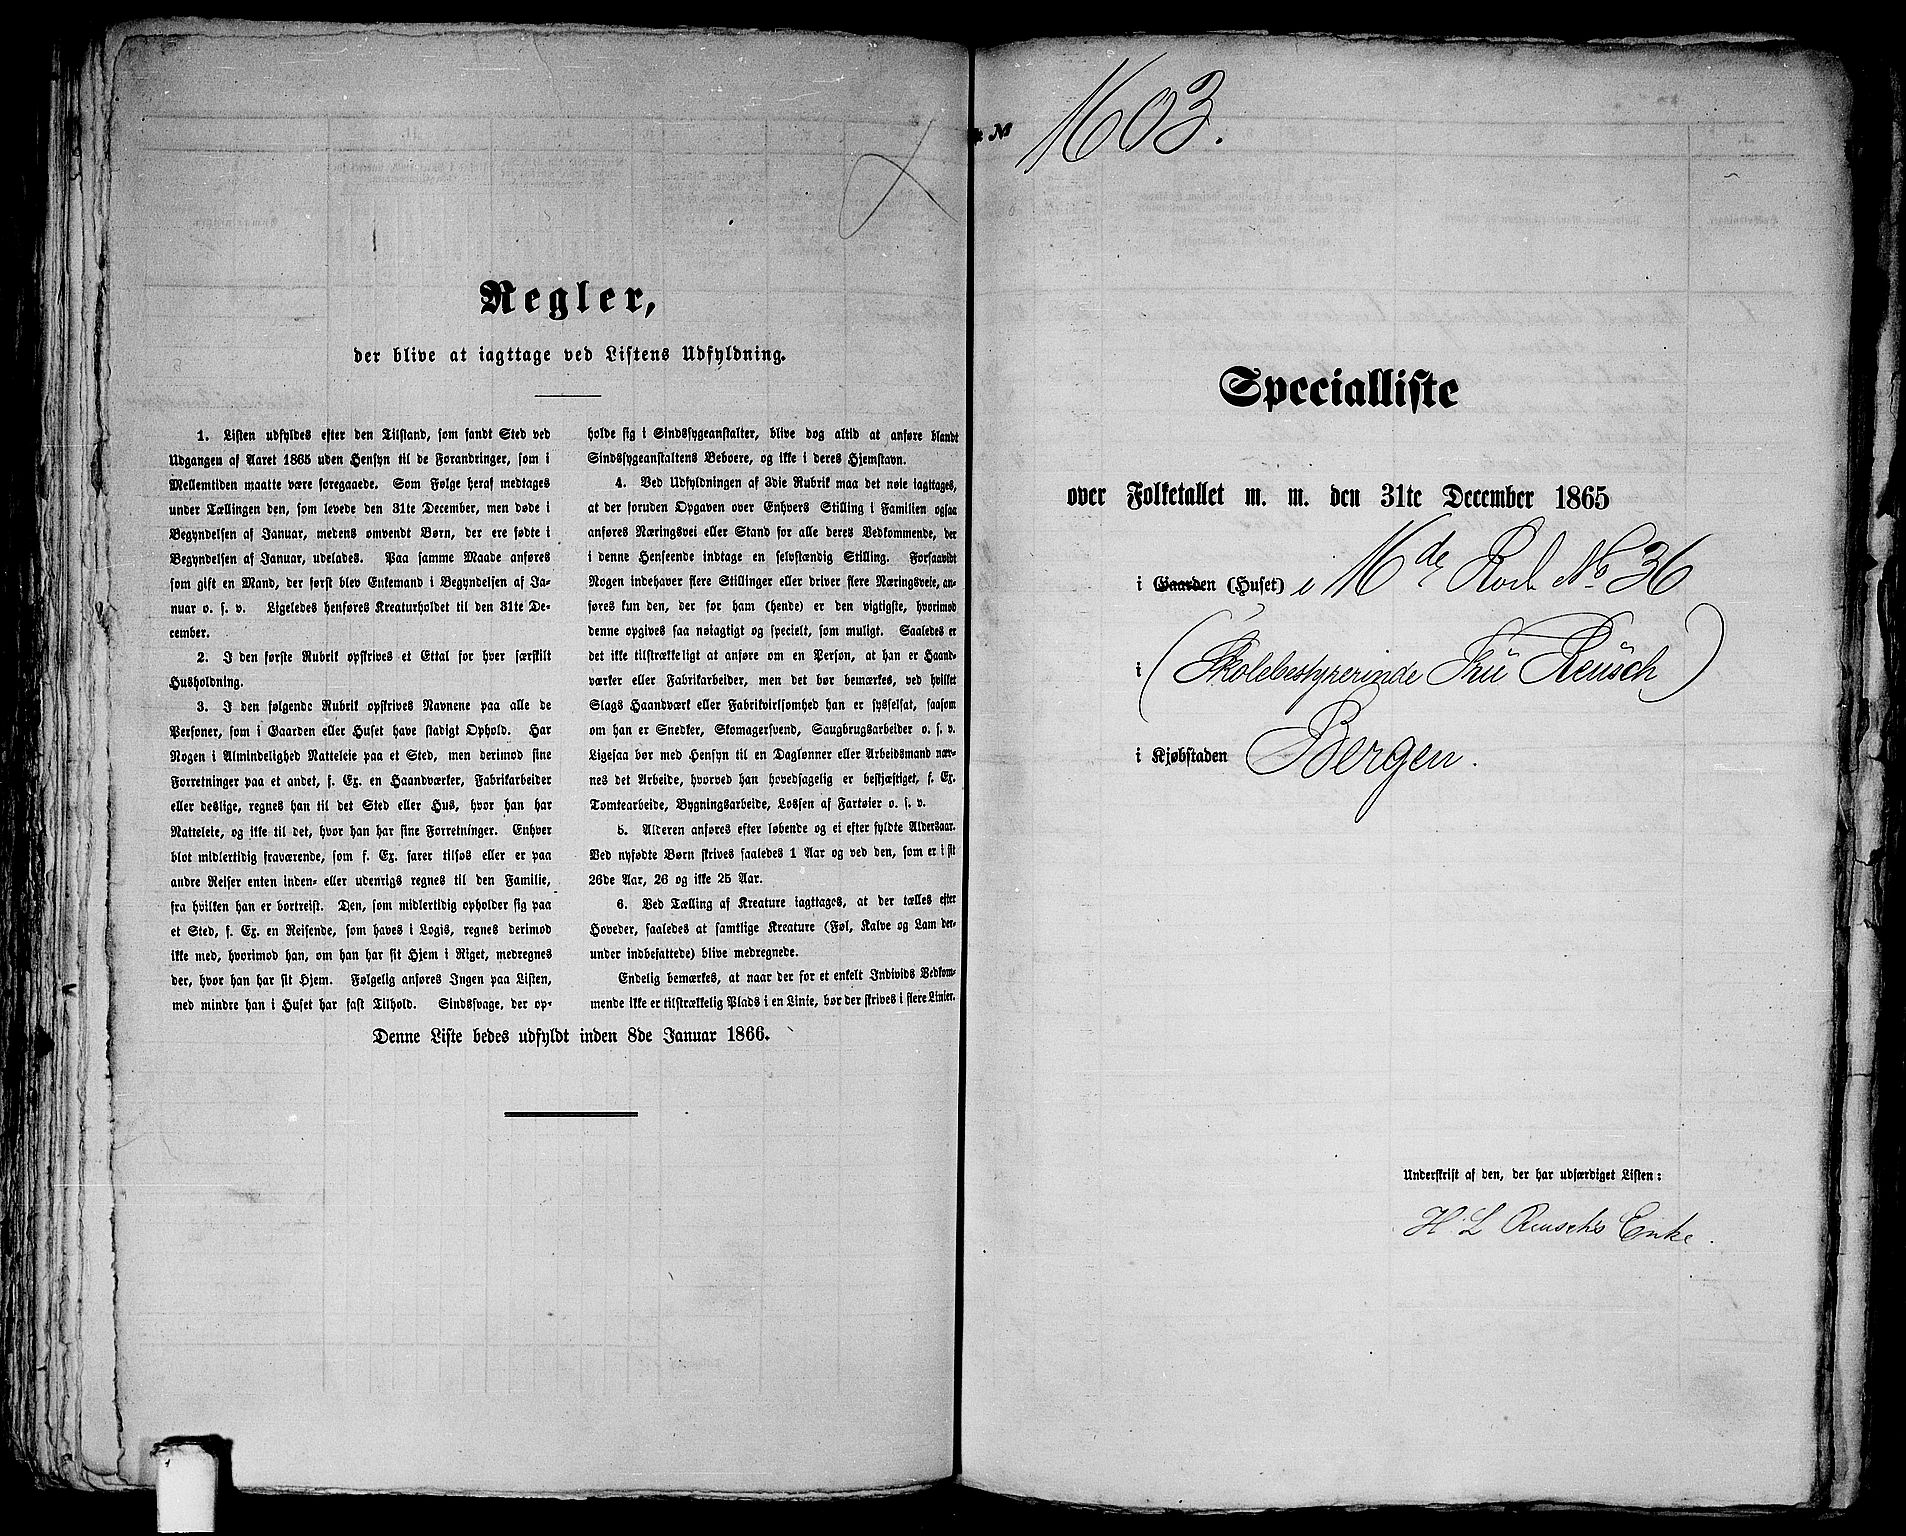 Regler,
der blive at iagttage ved Listens Udfyldning.
1. Listen udfyldes efter den Tilstand, som fandt Sted ved
Udgangen af Aaret 1865 uden Hensyn til de Forandringer, som i
Mellemtiden maatte være foregaaede. Som Følge heraf medtages
under Tællingen den, som levede den 31te December, men døde i
Begyndelsen af Januar, medens omvendt Børn, der ere fødte i
Begyndelsen af Januar, udelades. Paa samme Maade anføres
som gift en Mand, der først blev Enkemand i Begyndelsen af Ja-
nuar o. s. v. Ligeledes henføres Kreaturholdet til den 31te De-
cember.
2. I den første Rubrik opskrives et Ettal for hver særskilt
Husholdning.
3. I den følgende Rubrik opskrives Navnene paa alle de
Personer, som i Gaarden eller Huset have stadigt Ophold. Har
Nogen i Almindelighed Natteleie paa et Sted, men derimod sine
Forretninger paa et andet, f. Ex. en Haandværker, Fabrikarbeider
eller deslige, regnes han til det Sted eller Hus, hvor han har
Natteleie, og ikke til det, hvor han har sine Forretninger. Enhver
blot midlertidig fraværende, som f. Ex. farer tilsøs eller er paa
andre Reiser enten inden- eller udenrigs regnes til den Familie,
fra hvilken han er bortreist. Den, som midlertidig opholder sig paa
et Sted, f. Ex. en Reisende, som haves i Logis, regnes derimod
ikke med, hvorimod han, om han har sit Hjem i Riget, medregnes
der, hvor han har sit Hjem. Følgelig anføres Ingen paa Listen,
med mindre han i Huset har fast Tilhold. Sindssvage, der op-
holde sig i Sindssygeanstalter, blive dog altid at anføre blandt
Sindssygeanstaltens Beboere, og ikke i deres Hjemstavn.
4. Ved Udfyldningen af 3die Rubrik maa det nøie iagttages,
at der foruden Opgaven over Enhvers Stilling i Familien ogsaa
anføres Næringsvei eller Stand for alle deres Vedkommende, der
i denne Henseende indtage en selvstændig Stilling. Forsaavidt
Nogen indehaver flere Stillinger eller driver flere Næringsveie, an-
føres kun den, der for ham (hende) er den vigtigste, hvorimod
denne opgives saa nøiagtigt og specielt, som muligt. Saaledes er
det ikke tilstrækkeligt at anføre om en Person, at han er Haand-
værker eller Fabrikarbeider, men det bør bemærkes, ved hvilket
Slags Haandværk eller Fabrikvirksomhed han er sysselsat, saasom
om han er Snedker, Skomagersvend, Saugbrugsarbeider o. s. v.
Ligesaa bør med Hensyn til en Dagløner eller Arbeidsmand næv-
nes det Arbeide, hvorved han hovedsagelig er beskjæftiget, f. Ex.
Tomtearbeide, Bygningsarbeide, Lossen af Fartøier o. s. v.
5. Alderen anføres efter løbende og ei efter fyldte Aldersaar.
Ved nyfødte Børn skrives saaledes 1 Aar og ved den, som er i sit
26de Aar, 26 og ikke 25 Aar.
6. Ved Tælling af Kreature iagttages, at der tælles efter
Hoveder, saaledes at samtlige Kreature (Føl, Kalve og Lam der-
under indbefattede) blive medregnede.
Endelig bemærkes, at naar der for et enkelt Individs Vedkom-
mende ikke er tilstrækkelig Plads i en Linie, bør der skrives i flere Linier.
Denne Liste bedes udfyldt inden 8de Januar 1866.
№ 1603.
Specialliste
over Folketallet m. m. den 31te December 1865
i Gaarden (Huset) i 16de Rode No 36
i (Skolebestyrerinde Frü Reusch)
i Kjøbstaden Bergen.
Underskrift af den, der har udfærdiget Listen:
H. L Reusch's Enke.